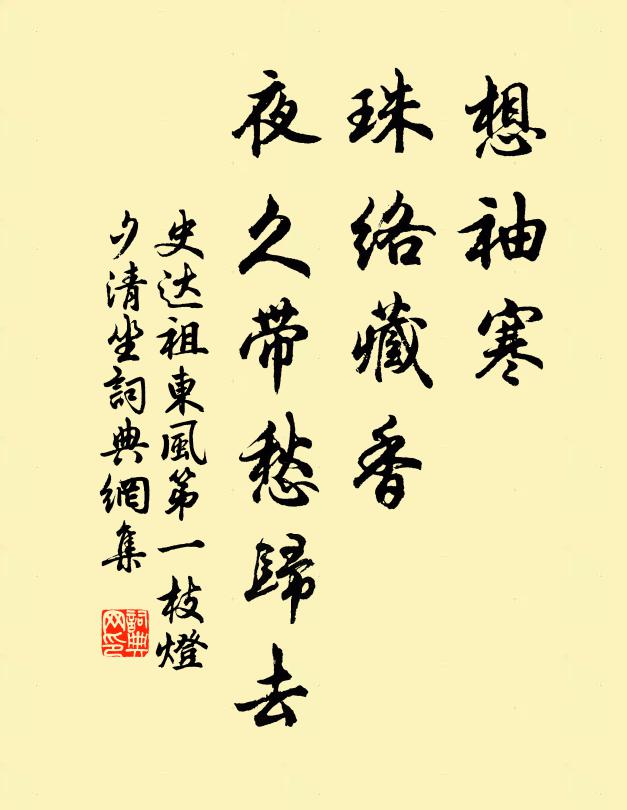 想袖寒
珠络藏香
夜久带愁歸去
史达祖東風第一枝燈
夕清坐詞典網集
詞典网印